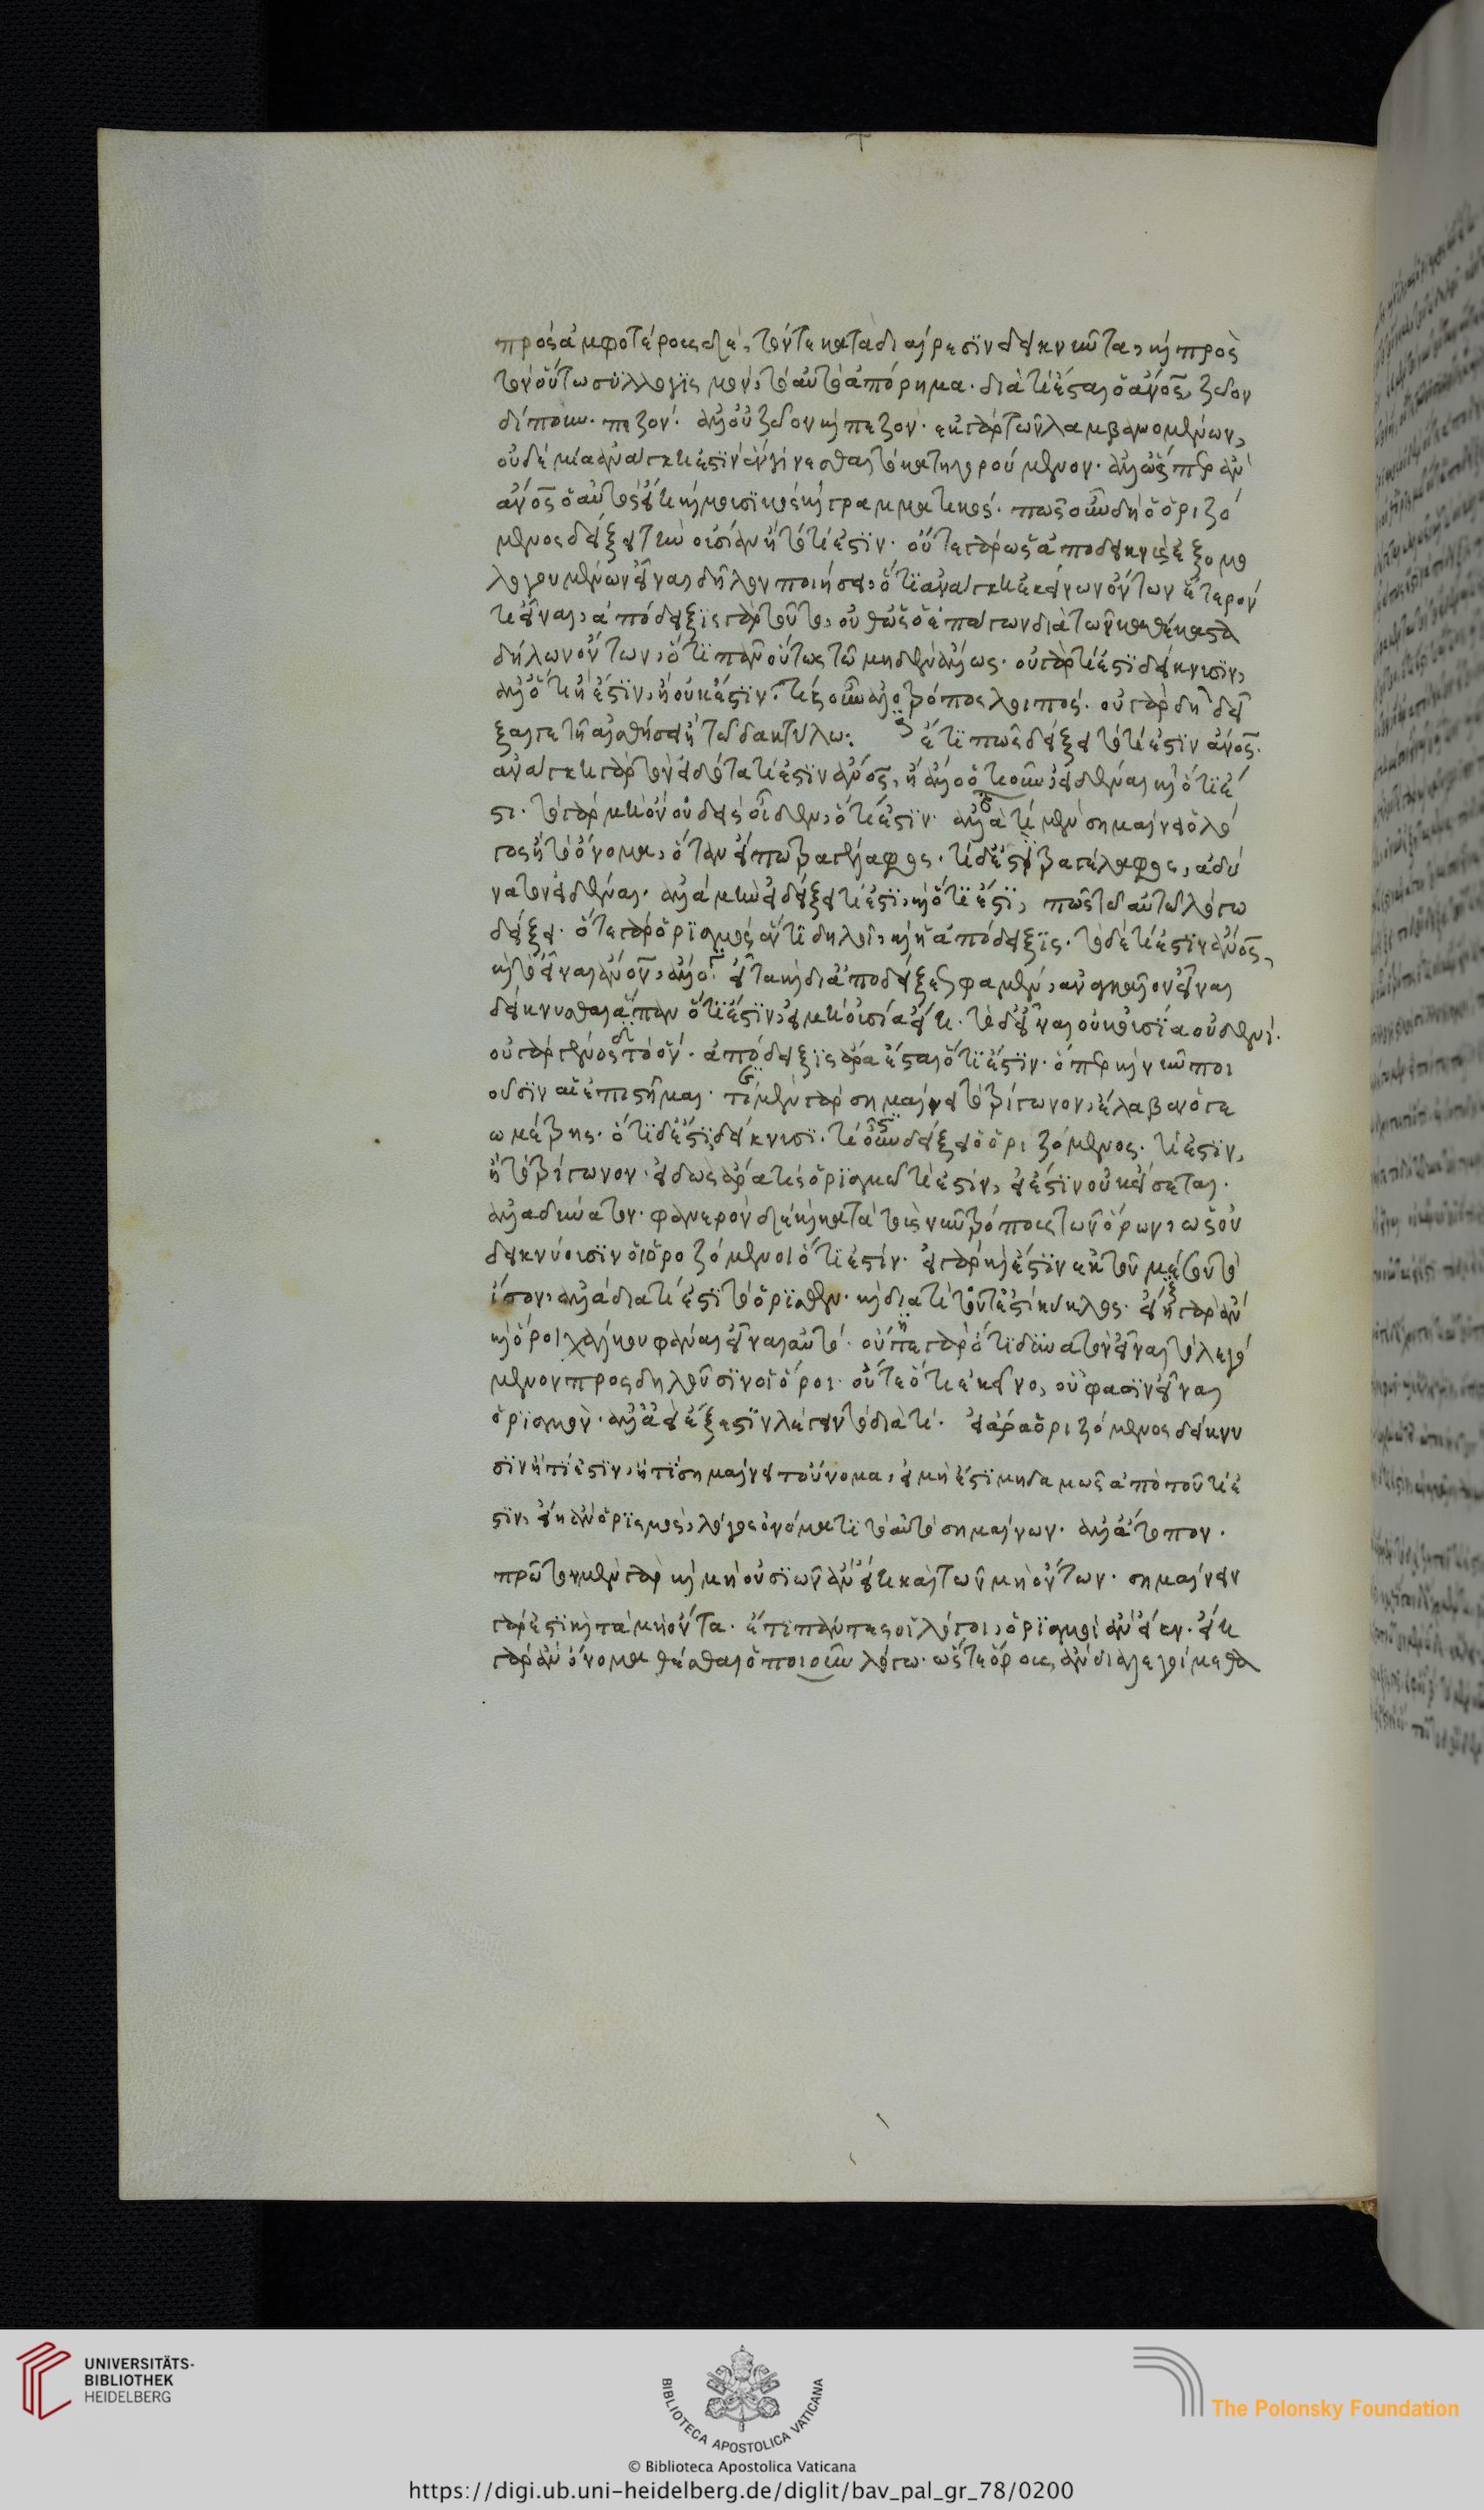 πρὸς ἀμφοτέρους δὲ, τόν τε κατὰ διαίρεσιν δεικνῦντα, καὶ πρὸς
τὸν οὕτω συλλογισμὸν, τὸ αὐτὸ ἀπόρημα. διὰ τί ἔσται ὁ ἄνος, ζῶον
δίπουν. πεζόν. ἀλλ' οὐ ζῶον καὶ πεζόν. ἐκ γὰρ τῶν λαμβανομένων,
οὐδεμία ἀνάγκη ἐστὶν ἓν γίνεσθαι τὸ κατηγορούμενον. ἀλλ' ὥσπερ ἂν
ἄνος ὁ αὐτὸς εἴη καὶ μουσικὸς καὶ γραμματικός. πῶς οὖν δὴ ὁ ὁριζό
μενος δείξει τὴν οὐσίαν ἢ τὸ τί ἐστιν. οὔτε γὰρ ὡς ἀποδεικνὺς ἐξ ὁμο
λογουμένων εἶναι δῆλον ποιήσει, ὅτι ἀνάγκη ἐκείνων ὄντων ἕτερόν
τι εἶναι, ἀπόδειξις γὰρ τοῦτο, οὔθ' ὡς ὁ ἐπάγων διὰ τῶν καθέκαστα
δήλων ὄντων, ὅτι πᾶν οὕτως τῶ μηδὲν ἄλλως. οὐ γὰρ τί ἐστι δείκνυσιν,
ἀλλ' ὅτι ἢ ἔστιν, ἢ οὐκ ἔστιν. τίς οὖν ἄλλος τρόπος λοιπός. οὐ γὰρ δὴ δεῖ
ξαι γε τῆ αἰσθήσει ἢ τῶ δακτύλω: ἔτι πῶς δείξει τὸ τί ἐστιν ἄνος.
ἀνάγκη γὰρ τὸν εἰδότα τί ἐστιν ἄνος, ἢ ἄλλο ὁτιοῦν, εἰδέναι καὶ ὅτι ἔ
στι. τὸ γὰρ μὴ ὂν οὐδεὶς οἶδεν, ὅτι ἐστίν. ἀλλὰ τί μὲν σημαίνει ὁ λό
γος ἢ τὸ ὄνομα, ὅταν εἴπω τραγέλαφος. τί δ' ἐστὶ τραγέλαφος, ἀδύ
νατον εἰδέναι. ἀλλὰ μὴν εἰ δείξει τί ἐστι, καὶ ὅτι ἔστι, πῶς τῶ αὐτῶ λόγω
δείξει. ὅ τε γὰρ ὁρισμὸς ἕν τι δηλοῖ, καὶ ἡ ἀπόδειξις. τὸ δὲ τί ἐστιν ἄνος,
καὶ τὸ εἶναι ἄνον, ἄλλο. εἶτα καὶ δι' ἀποδείξεώς φαμεν, ἀναγκαῖον εἶναι
δείκνυσθαι ἅπαν ὅτι ἔστιν, εἰ μὴ οὐσία εἴη. τὸ δ' εἶναι οὐκ οὐσία οὐδενί.
οὐ γὰρ γένος τὸ ὄν. ἀπόδειξις ἄρα ἔσται ὅτι ἔστιν. ὅπερ καὶ νῦν ποι
οῦσιν αἱ ἐπιστῆμαι. τί μὲν γὰρ σημαίνει τὸ τρίγωνον, ἔλαβεν ὁ γε
ωμέτρης. ὅτι δ' ἔστι, δείκνυσι. τί οὖν δείξει ὁ ὁριζόμενος. τί ἐστιν,
ἢ τὸ τρίγωνον. εἰδὼς ἄρα τις ὁρισμῶ τί ἐστιν, εἰ ἔστιν οὐκ εἴσεται.
ἀλλ' ἀδύνατον. φανερὸν δὲ καὶ κατὰ τοὺς νῦν τρόπους τῶν ὅρων, ὡς οὐ
δεικνύουσιν οἱ ὁριζόμενοι ὅτι ἐστίν. εἰ γὰρ καὶ ἔστιν ἐκ τοῦ μέσου τὸ
ἴσον, ἀλλὰ διὰ τί ἐστι τὸ ὁρισθέν. καὶ διὰ τί τοῦτ' ἐστὶ κύκλος. εἴη γὰρ ἂν
καὶ ὀρειχάλκου φάναι εἶναι αὐτό. οὔτε γὰρ ὅτι δυνατὸν εἶναι τὸ λεγό
μενον προσδηλοῦσιν οἱ ὅροι. οὔτε ὅτι ἐκεῖνο, οὗ φασὶν εἶναι
ὁρισμόν. ἀλλ' ἀεὶ ἔξεστιν λέγειν τὸ διὰ τί. εἰ ἄρα ὁ ὁριζόμενος δείκνυ
σιν ἢ τί ἐστιν, ἢ τί σημαίνει τοὔνομα, εἰ μὴ ἔστι μηδαμῶς ἀπὸ τοῦ τί ἐ
στιν, εἴη ἂν ὁρισμὸς, λόγος ὀνόματι τὸ αὐτὸ σημαίνων. ἀλλ' ἄτοπον.
πρῶτον μὲν γὰρ καὶ μὴ οὐσιῶν ἂν εἴη καὶ τῶν μὴ ὄντων. σημαίνειν
γὰρ ἔστι καὶ τὰ μὴ ὄντα. ἔτι πάντες οἱ λόγοι, ὁρισμοὶ ἂν εἶεν. εἴη
γὰρ ἂν ὄνομα θέσθαι ὁποιουοῦν λόγω. ὥστε ὅρους ἂν διαλεγοίμεθα
UNIVERSITÄTS-
BIBLIOTHEK
HEIDELBERG
BIBLIOTECA APOSTOLICA VATICANA
The Polonsky Foundation
© Biblioteca Apostolica Vaticana
https://digi.ub.uni-heidelberg.de/diglit/bav_pal_gr_78/0200